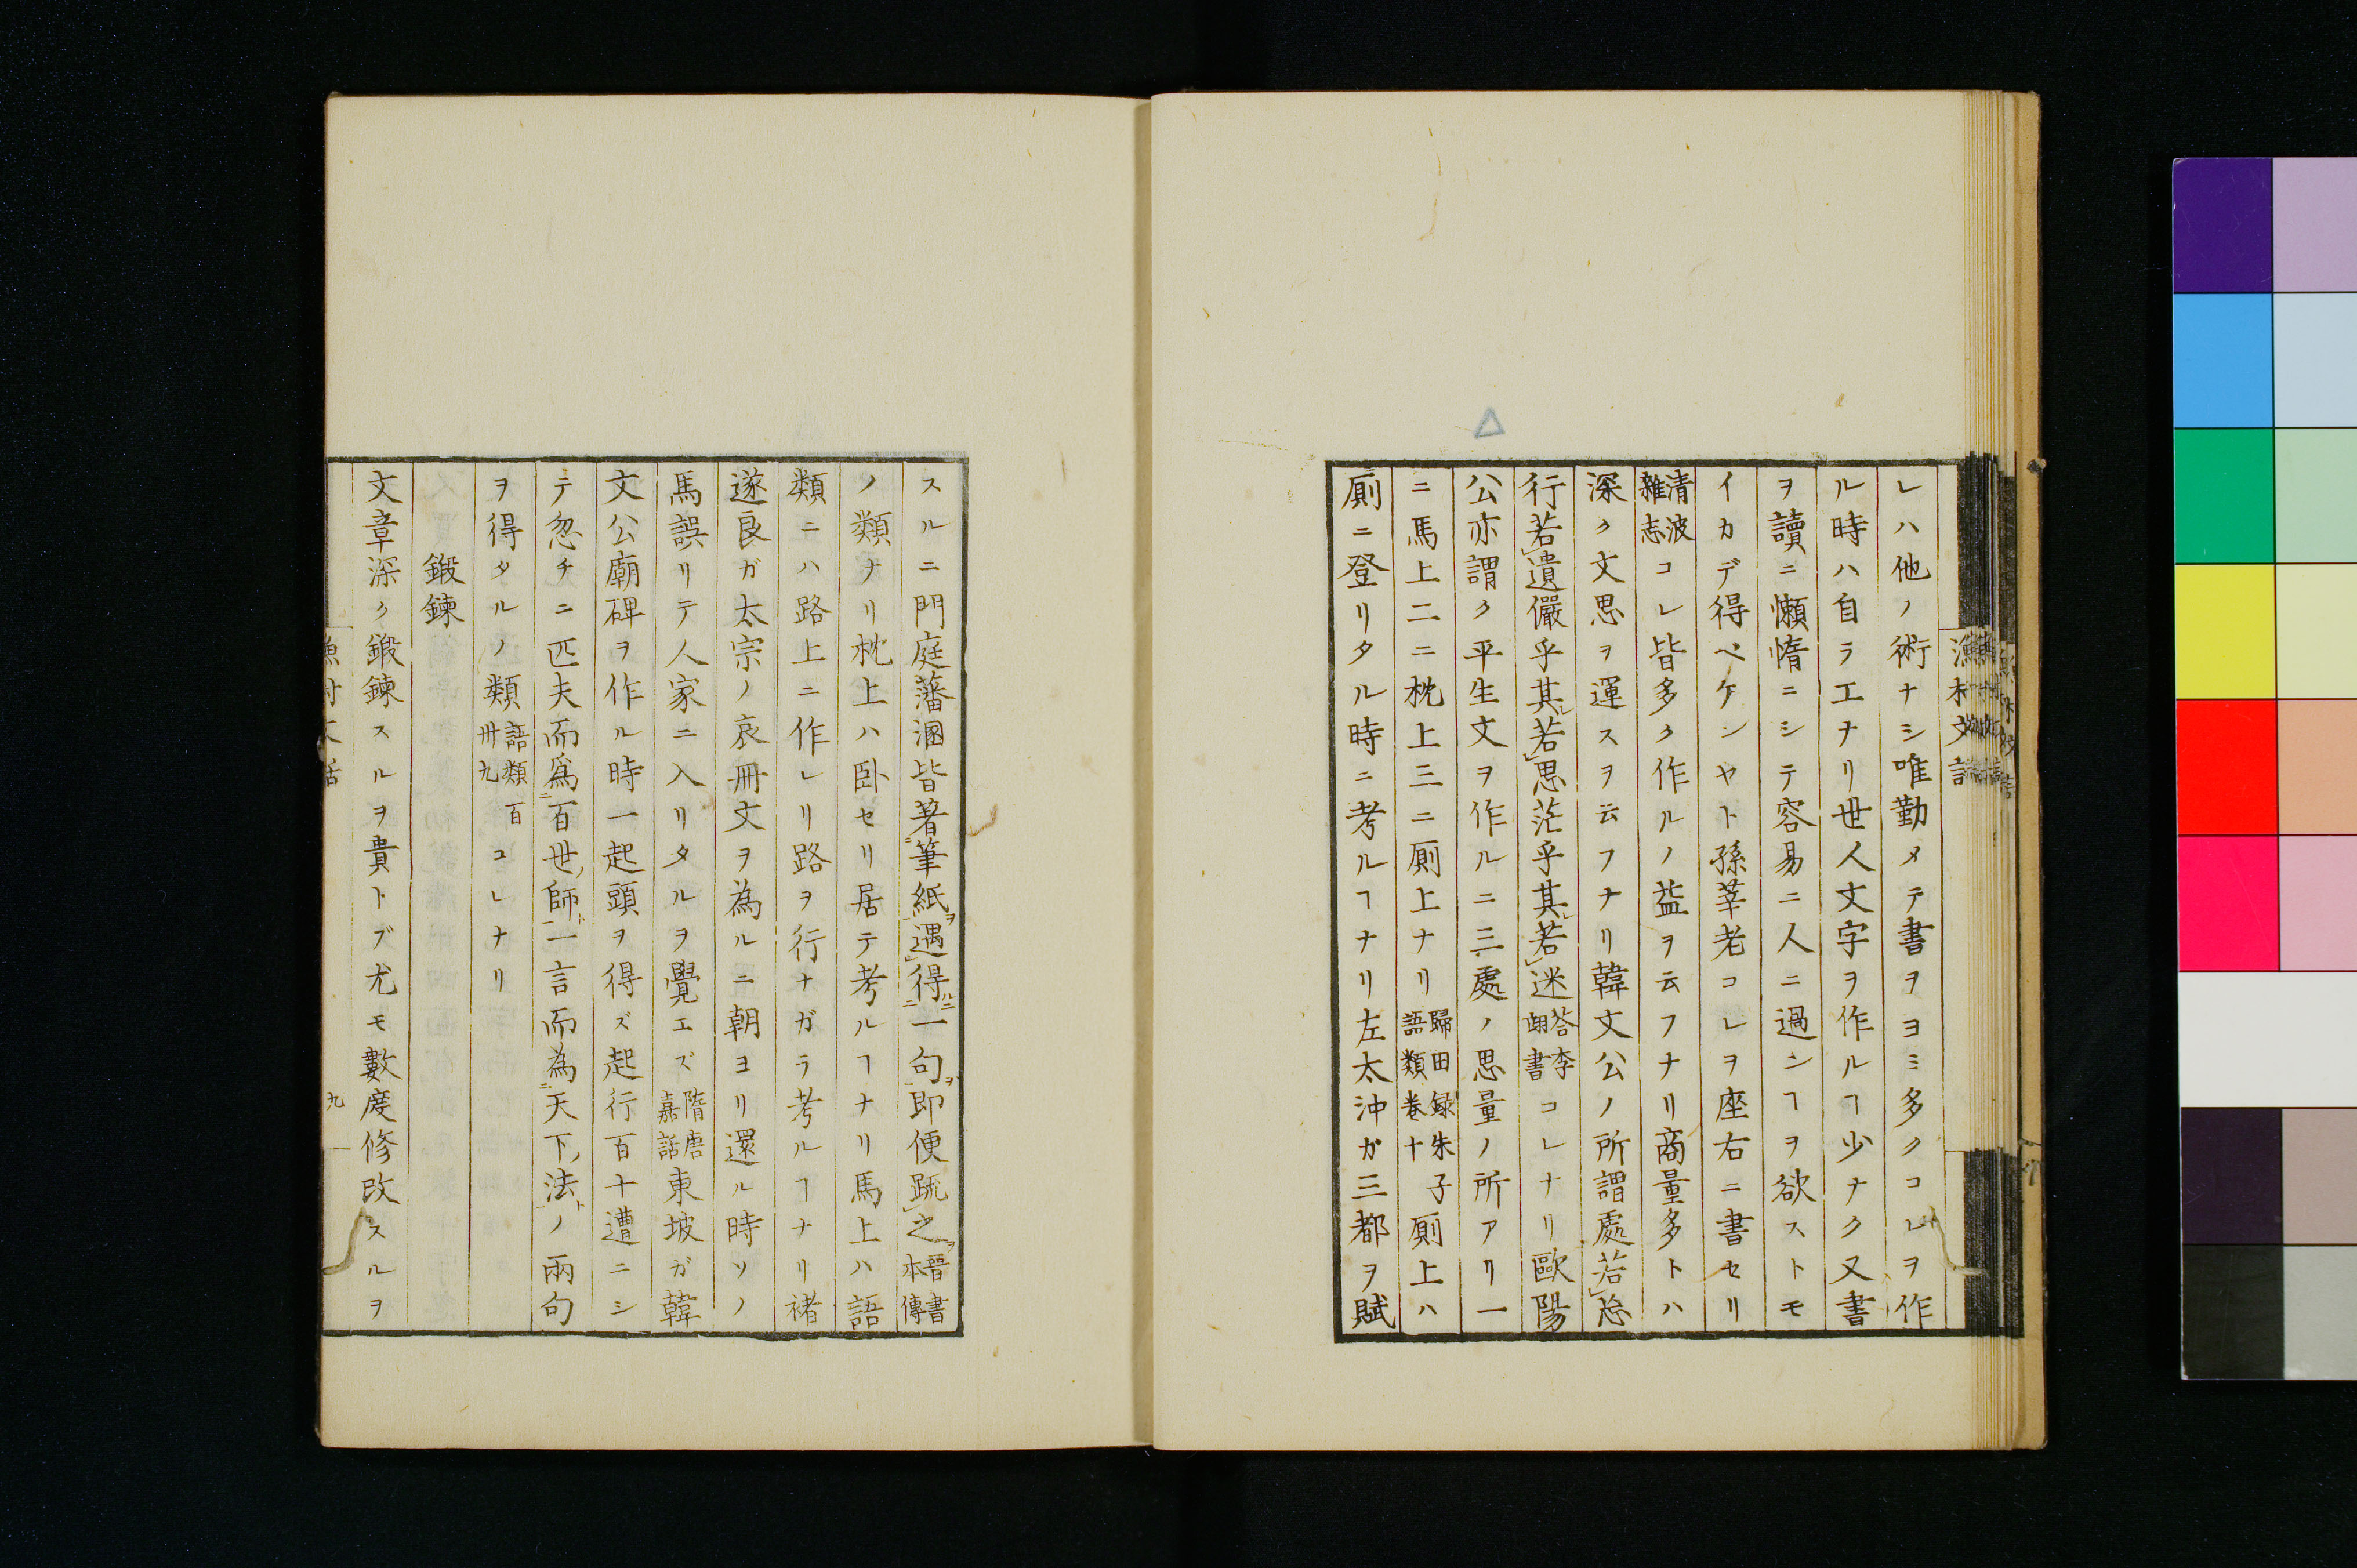 レハ他ノ術ナシ唯勤メテ書ヲヨミ多クコレヲ作
ル時ハ自ラエナリ世人文字ヲ作ルヿ少ナク又書
ヲ讀ニ懶惰ニシテ容易ニ人ニ過ンヿヲ欲ストモ
イカデ得ベケンヤト孫莘老コレヲ座右ニ書セリ
清波雜志コレ皆多ク作ルノ益ヲ云フナリ商量多トハ
深ク文思ヲ運スヲ云フナリ韓文公ノ所謂處若忘
行若遺儼乎其若思茫乎其若迷答李翊書コレナリ歐陽
公亦謂ク平生文ヲ作ルニ三處ノ思量ノ所アリ一
ニ馬上二ニ枕上三ニ厠上ナリ歸田録朱子語類卷十厠上ハ
厠ニ登リタル時ニ考ルヿナリ左太沖ガ三都ヲ賦
スルニ門庭藩溷皆著筆紙ヲ遇得一句ヲ即便疏之ヲ晉書本傳
ノ類ナリ枕上ハ卧セリ居テ考ルヿナリ馬上ハ語
類ニハ路上ニ作レリ路ヲ行ナガラ考ルヿナリ褚
遂良ガ太宗ノ哀冊文ヲ為ルニ朝ヨリ還ル時ソノ
馬誤リテ人家ニ入リタルヲ覺エズ隋唐嘉話東坡ガ韓
文公廟碑ヲ作ル時一起頭ヲ得ズ起行百十遭ニシ
テ忽チニ匹夫而爲百世師一言而為天下法ノ兩句
ヲ得タルノ類語類百卅九コレナリ
鍛鍊
文章深ク鍛鍊スルヲ貴トブ尤モ數度修改スルヲ
九